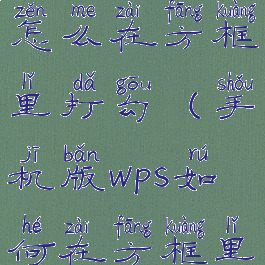 zěn me zài fāng kuàng
怎么在方框
lǐ dǎ gōu shǒu
里打勾（手
jī bǎn rú
机版WPS如
hé zài fāng kuàng lǐ
何在方框里